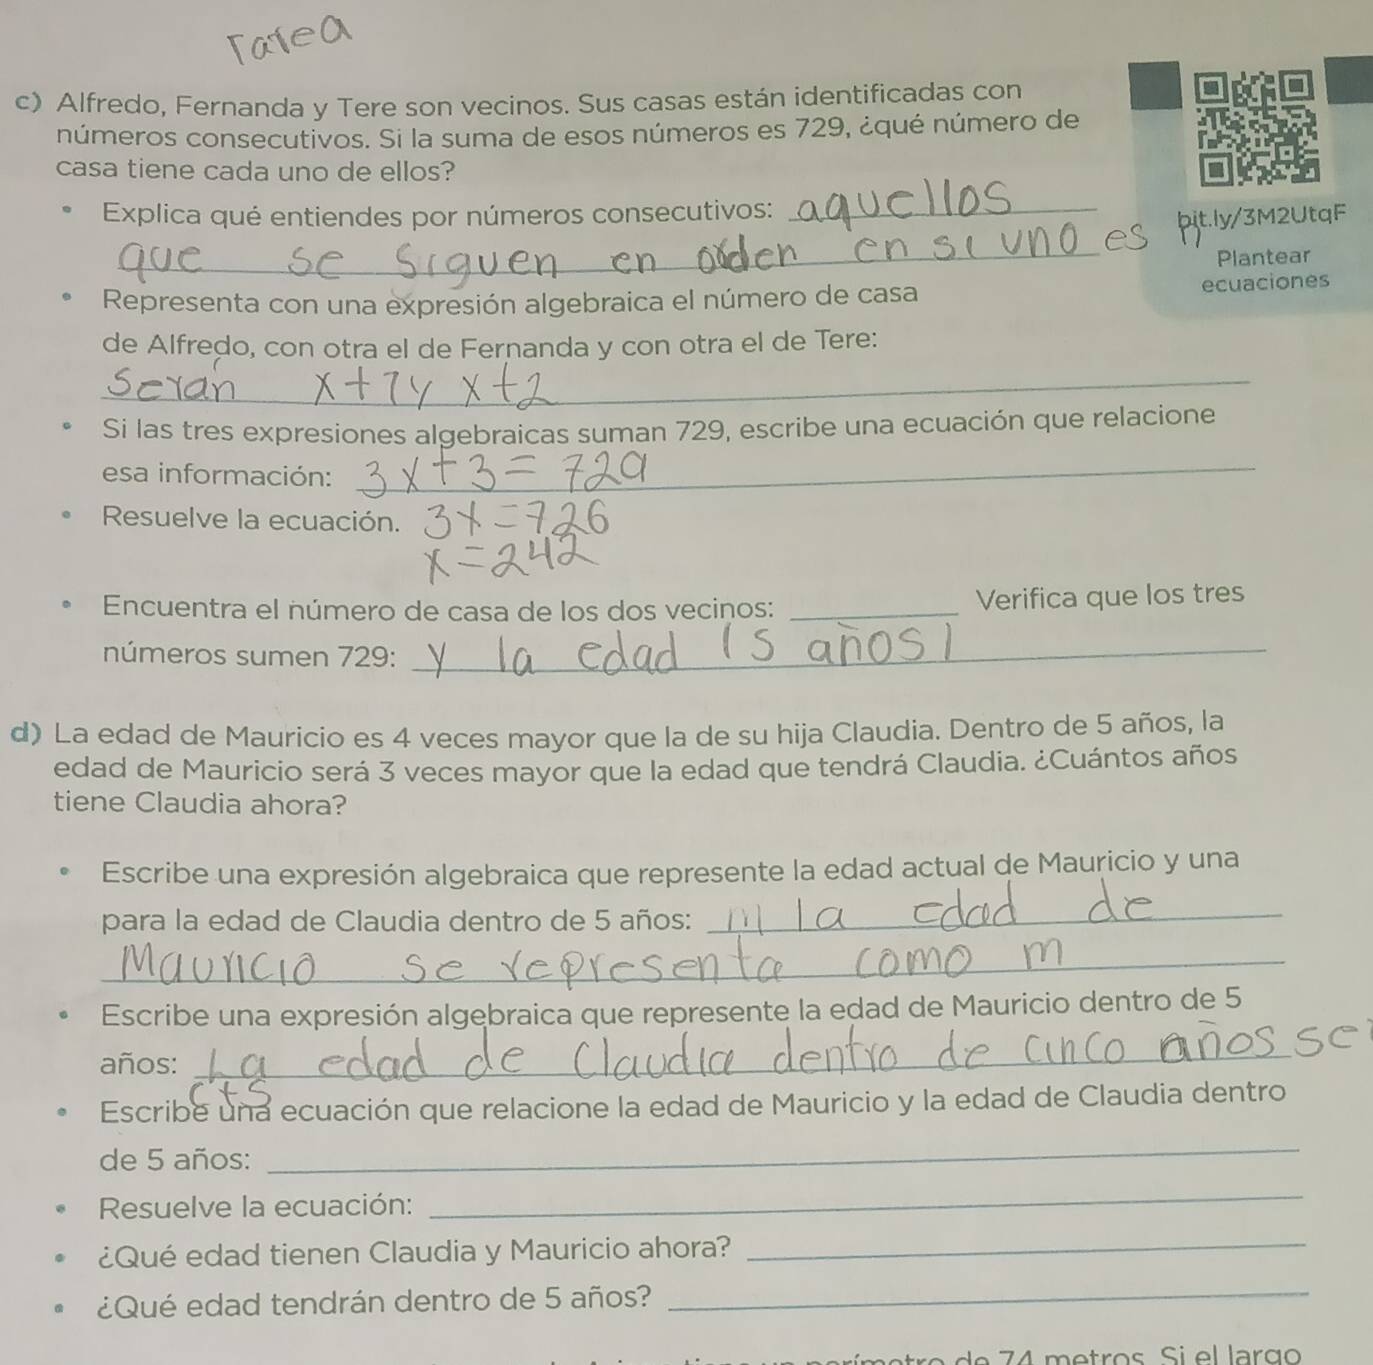 Tarea
c) Alfredo, Fernanda y Tere son vecinos. Sus casas están identificadas con
números consecutivos. Si la suma de esos números es 729, ¿qué número de
casa tiene cada uno de ellos?
• Explica qué entiendes por números consecutivos: aquellos
que se siguen en orden en si uno es
bit.ly/3M2UtqF
Plantear
ecuaciones
• Representa con una expresión algebraica el número de casa
de Alfredo, con otra el de Fernanda y con otra el de Tere:
Seran x+1 y x+2
• Si las tres expresiones algebraicas suman 729, escribe una ecuación que relacione
esa información: 3x+3=729
• Resuelve la ecuación. 3x=726
x=242
• Encuentra el número de casa de los dos vecinos: Verifica que los tres
números sumen 729: y la edad 15 años
d) La edad de Mauricio es 4 veces mayor que la de su hija Claudia. Dentro de 5 años, la
edad de Mauricio será 3 veces mayor que la edad que tendrá Claudia. ¿Cuántos años
tiene Claudia ahora?
• Escribe una expresión algebraica que represente la edad actual de Mauricio y una
para la edad de Claudia dentro de 5 años: la edad de
Mauricio se representa como m
• Escribe una expresión algebraica que represente la edad de Mauricio dentro de 5
años: La edad de Claudia dentro de cinco años se
c+5
• Escribe una ecuación que relacione la edad de Mauricio y la edad de Claudia dentro
de 5 años:
• Resuelve la ecuación:
• ¿Qué edad tienen Claudia y Mauricio ahora?
• ¿Qué edad tendrán dentro de 5 años?
de 74 metros. Si el largo